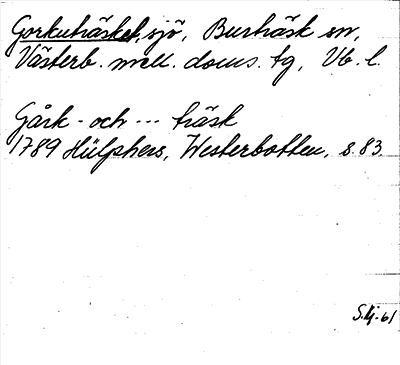 Gorkuträsket, sjö, Burträsk sn,
Västerb. mell. doms. tg, Vb. l.
Gårk- och ... träsk
1789 Hülphers, Westerbotten, s. 83.
S.Lj-61